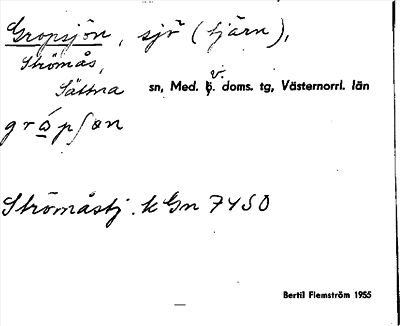 Gropsjön, sjö (tjärn),
Strömås,
Sättna sn, Med. v. doms. tg, Västernorrl. län
gròpʃøn
Strömåstj. k Gn 7450
Bertil Flemström 1955